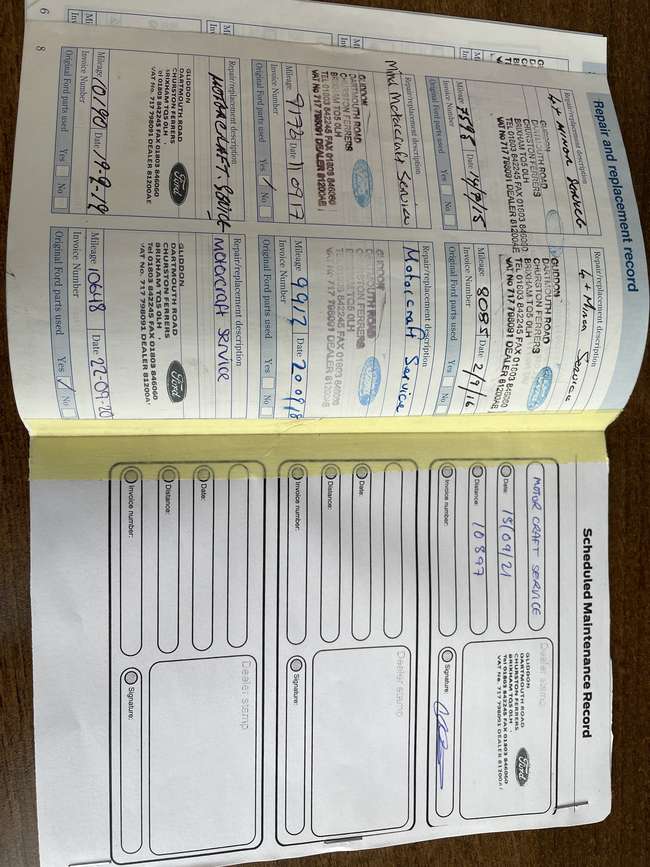 Repair and replacement record
Repair/replacement description
4+ Minor Service
GLIDDON
DARTMOUTH ROAD
CHURSTON FERRERS
BRIXHAM TQ5 0LH
TEL 01803 842245 FAX 01803 846060
VAT No 717 798091 DEALER 81200AE
Mileage 7595 Date
Invoice Number
Original Ford parts used Yes No
Repair/replacement description
4+ Minor Service
GLIDDON
DARTMOUTH ROAD
CHURSTON FERRERS
BRIXHAM TQ5 0LH
TEL 01803 842245 FAX 01803 846060
VAT No 717 798091 DEALER 81200AE
Mileage 8085 Date 2/9/16
Invoice Number
Original Ford parts used Yes No
Repair/replacement description
Mini Motorcraft Service
GLIDDON
DARTMOUTH ROAD
CHURSTON FERRERS
BRIXHAM TQ5 0LH
TEL 01803 842245 FAX 01803 846060
VAT No 717 798091 DEALER 81200AE
Mileage 9173 Date 110917
Invoice Number
Original Ford parts used Yes No
Repair/replacement description
Motorcraft Service
GLIDDON
DARTMOUTH ROAD
CHURSTON FERRERS
BRIXHAM TQ5 0LH
TEL 01803 842245 FAX 01803 846060
VAT No 717 798091 DEALER 81200AE
Mileage 9912 Date 200918
Invoice Number
Original Ford parts used Yes No
Repair/replacement description
MOTORCRAFT. SERVICE
GLIDDON
DARTMOUTH ROAD
CHURSTON FERRERS
BRIXHAM TQ5 0LH
Tel 01803 842245 FAX 01803 846060
VAT No. 717 798091 DEALER 81200AE
Ford
Mileage 10190 Date
Invoice Number
Original Ford parts used Yes No
Repair/replacement description
MOTORCRAFT SERVICE
GLIDDON
DARTMOUTH ROAD
CHURSTON FERRERS
BRIXHAM TQ5 0LH
Tel 01803 842245 FAX 01803 846060
VAT No. 717 798091 DEALER 81200A
Ford
Mileage 10648 Date 22-09-20
Invoice Number
Original Ford parts used Yes No
8
6
Scheduled Maintenance Record
MOTOR CRAFT SERVICE
Date: 15/09/21
Distance: 10897
Invoice number:
Dealer stamp
GLIDDON
DARTMOUTH ROAD
CHURSTON FERRERS
BRIXHAM TQ5 0LH
Tel 01803 842245 FAX 01803 846060
VAT No. 717 798091 DEALER 81200A
Ford
Signature:
Date:
Distance:
Invoice number:
Dealer stamp
Signature:
Date:
Distance:
Invoice number:
Dealer stamp
Signature: